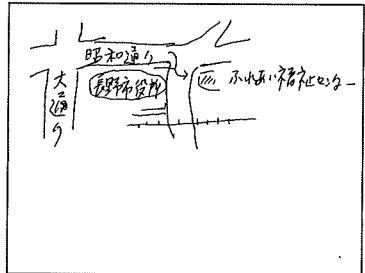 昭和通り
大通り
長野市役所
ふれあい福祉センター